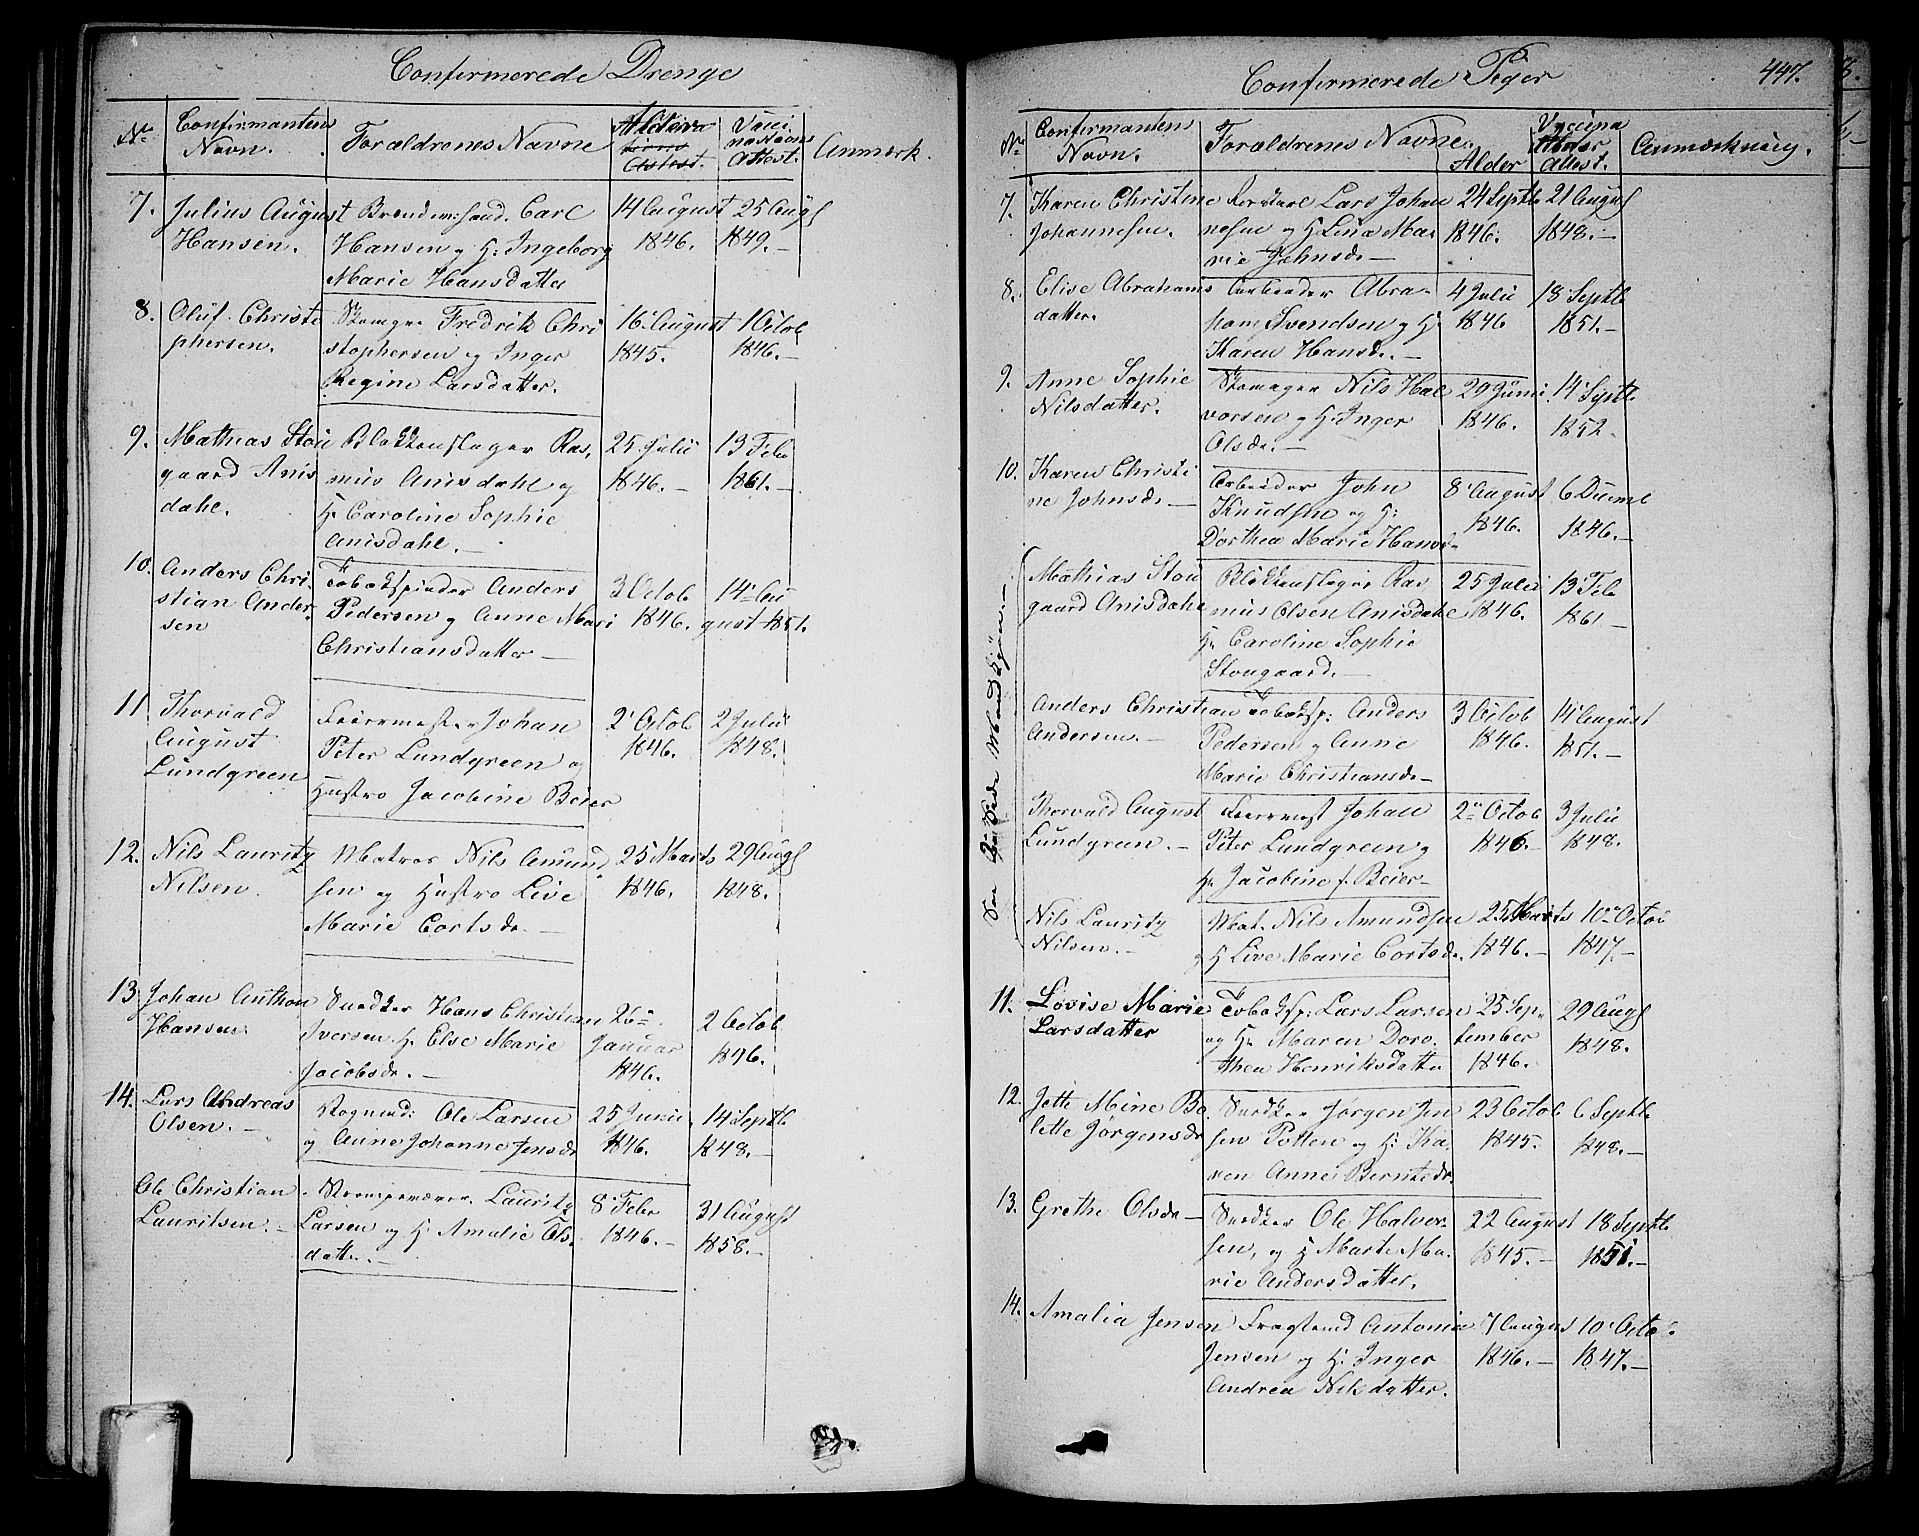 Confirmerede Drenge
No
Confirmantens
Navn.
Forældrenes Navne
Alders
Attest.
Vacci
nations
Attest.
Anmærk.
7.
Julius August
Hansen.
Brændev: hand. Carl
Hansen og H: Ingeborg
Marie Hansdatter
14 August
1846.
25 Augs
1849.-
8.
Oluf Christo
phersen.
Skomager Fredrik Chri
stophersen og Inger
Regine Larsdatter.
16 August
1845.
1 Octob
1846.-
9.
Mathias Stou
gaard Anis
dahl.
Blokkenslager Ras,
mus Anisdahl og
H. Caroline Sophie
Anisdahl.-
25 Julii
1846.-
13 Feb
1861.-
10.
Anders Chri
stian Ander
sen
Tobakspinder Anders
Pedersen og Anne Mari
Christiansdatter-
3 Octob
1846.
14 Au
gust 1851.
11
Thorvald
August
Lundgreen
Feiermester Johan
Peter Lundgreen og
Hustro Jacobine Beier
2 Octob
1846.
2 Julii
1848.
12.
Nils Lauritz
Nilsen.
Matros Nils Amund,
sen og Hustro Live
Marie Cortsdr.-
25 Marts
1846.
29 Augs
1848.
13
Johan Anthon
Hansen
Snedker Hans Christian
Iversen H. Else Marie
Jacobsdr.-
26
Januar
1846.
2 Octob
1846.-
14.
Lars Andreas
Olsen.-
Ole Larsen
og Anne Johanne Jensdr
25 Juni
1846.
14 Septb
1848.-
Ole Christian
Lauritsen.-
Lauritz
Larsen og H. Amalie Ols
datter.-
8 Febr
1846.-
31 August
1858.-
Confirmerede Piger
447.
No
Confirmantens
Navn.
Forældrenes Navne.
Alder
Vaccina
Attest.
Anmærkning.
7.
Karen Christine
Johannesen.
Lars Johan
nesen og H Lina Ma
rie Johnsdr-
24 Septb
1846.
21 Augus
1848.-
8.
Elise Abrahams
datter.
Arbeider Abra-
ham Svendsen og H.
Karen Hansdr.-
4 Julii
1846
18 Septb
1851.-
9.
Anne Sophie
Nilsdatter.
Skomager Nils Hal
vorsen og H. Inger
Olsdr.-
29 Juni
1846.
14 Septb
1852.
10.
Karen Christi
ne Johnsdr-
Arbeider John
Knudsen og H:
Dorthea Marie Hansd-
8 August
1846.
6 Decemb
1846.-
Mathias Stou
gaard Anisdahl
Blokkenslager Ras
mus Olsen Anisdahl
H. Caroline Sophie
Stougaard.-
25 Julii
1846.
13 Feb
1861-
Anders Christian
Andersen.-
Tobaksp: Anders
Pedersen og Anne
Marie Christiansdr-
3 Octob
1846.
14 August
1851.-
Thorvald August
Lundgreen.-
Feiermest Johan
Peter Lundgreen og
H. Jacobine f. Beier-
2 Octob
1846.-
3 Julii
1848.
Nils Lauritz
Nilsen.-
Mat. Nils Amundsen
og H Live Marie Cortsdr.
25 Marts
1846.-
10 Octob
1847.-
11.
Lovise Marie
Larsdatter
Tobaksp: Lars Larsen
og H. Maren Doro.
thea Henriksdatter
25 Sep
tember
1846.
29 Augs
1848.
12.
Jette Mine Bo
lette Jørgensdr
Snedker Jørgen Jen
sen Potten og H. Ka
ren Anne Berntsdr.
23 Octob
1845.
6 Septb
1848.-
13.
Grethe Olsdr-
Snedker Ole Halvor
sen, og H Marte Ma.
rie Andersdatter.
22 August
1845.-
18 Septb
1851.-
14.
Amalia Jensen
Antonia
Jensen og H. Inger
Andrea Nilsdatter.
7 August
1846.-
10 Octo
1847.-